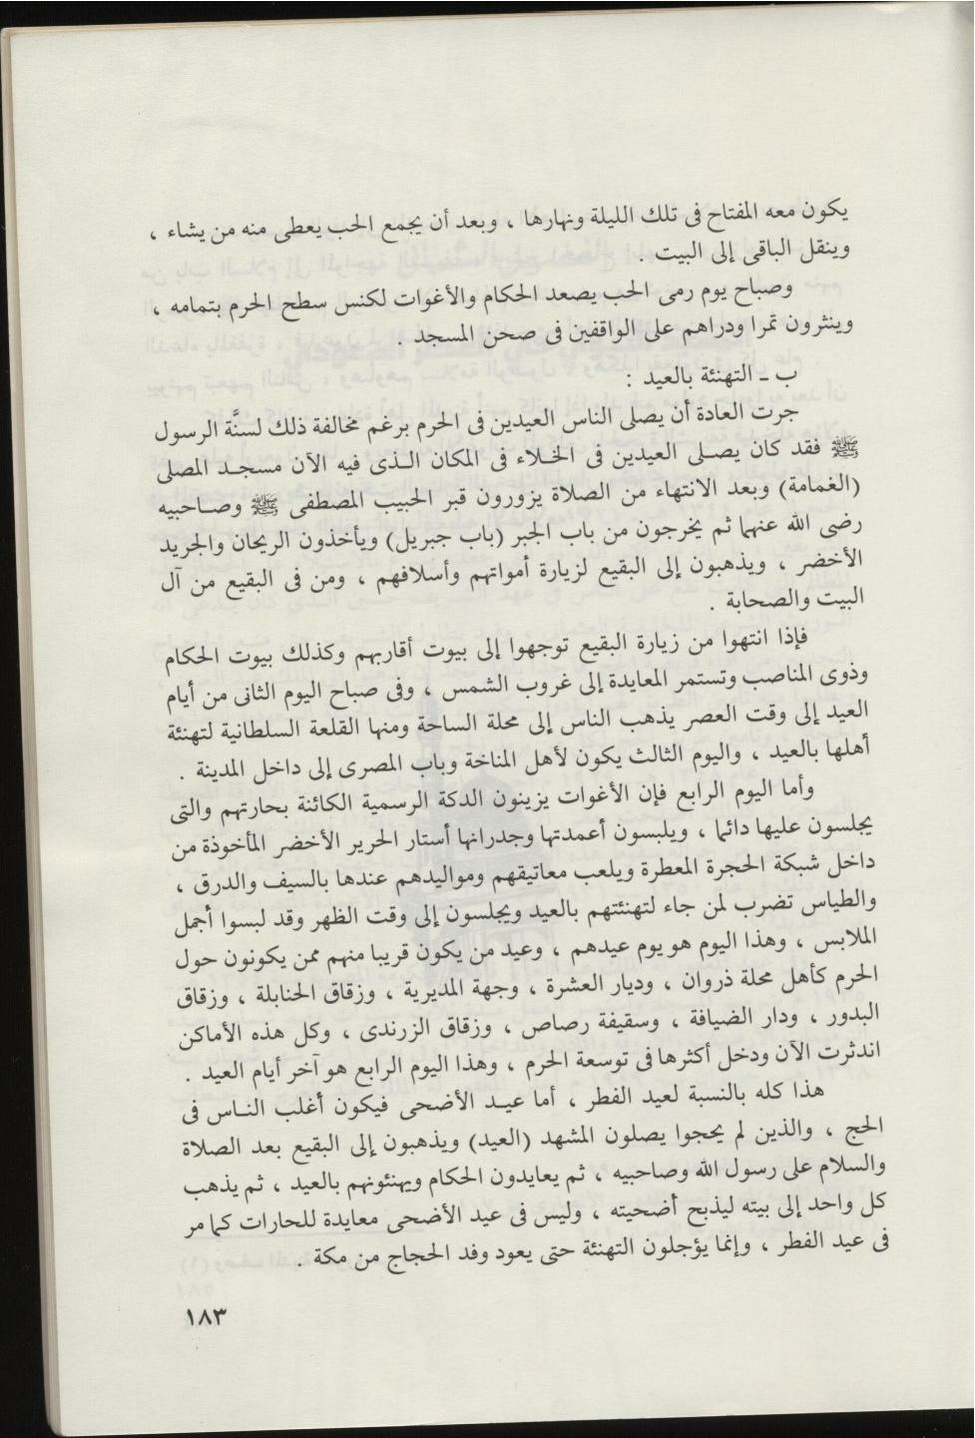 يكون معه المفتاح فى تلك الليلة ونهارها ، وبعد أن يجمع الحب يعطى منه من يشاء ،
وينقل الباقى إلى البيت .
وصباح يوم رمى الحب يصعد الحكام والأغوات لكنس سطح الحرم بتمامه ،
وينثرون تمرا ودراهم على الواقفين فى صحن المسجد .
ب ـ التهنئة بالعيد :
جرت العادة أن يصلى الناس العيدين فى الحرم برغم مخالفة ذلك لسنَّة الرسول
ﷺ فقد كان يصلى العيدين فى الخلاء فى المكان الذى فيه الآن مسجد المصلى
(الغمامة) وبعد الانتهاء من الصلاة يزورون قبر الحبيب المصطفى ﷺ وصاحبيه
رضى الله عنهما ثم يخرجون من باب الجبر (باب جبريل) ويأخذون الريحان والجريد
الأخضر ، ويذهبون إلى البقيع لزيارة أمواتهم وأسلافهم ، ومن فى البقيع من آل
البيت والصحابة .
فإذا انتهوا من زيارة البقيع توجهوا إلى بيوت أقاربهم وكذلك بيوت الحكام
وذوى المناصب وتستمر المعايدة إلى غروب الشمس ، وفى صباح اليوم الثانى من أيام
العيد إلى وقت العصر يذهب الناس إلى محلة الساحة ومنها القلعة السلطانية لتهنئة
أهلها بالعيد ، واليوم الثالث يكون لأهل المناخة وباب المصرى إلى داخل المدينة .
وأما اليوم الرابع فإن الأغوات يزينون الدكة الرسمية الكائنة بحارتهم والتى
يجلسون عليها دائما ، ويلبسون أعمدتها وجدرانها أستار الحرير الأخضر المأخوذة من
داخل شبكة الحجرة المعطرة ويلعب معاتيقهم ومواليدهم عندها بالسيف والدرق ،
والطياس تضرب لمن جاء لتهنئتهم بالعيد ويجلسون إلى وقت الظهر وقد لبسوا أجمل
الملابس ، وهذا اليوم هو يوم عيدهم ، وعيد من يكون قريبا منهم ممن يكونون حول
الحرم كأهل محلة ذروان ، وديار العشرة ، وجهة المديرية ، وزقاق الحنابلة ، وزقاق
البدور ، ودار الضيافة ، وسقيفة رصاص ، وزقاق الزرندى ، وكل هذه الأماكن
اندثرت الآن ودخل أكثرها فى توسعة الحرم ، وهذا اليوم الرابع هو آخر أيام العيد .
هذا كله بالنسبة لعيد الفطر ، أما عيد الأضحى فيكون أغلب الناس فى
الحج ، والذين لم يحجوا يصلون المشهد (العيد) ويذهبون إلى البقيع بعد الصلاة
والسلام على رسول الله وصاحبيه ، ثم يعايدون الحكام ويهنئونهم بالعيد ، ثم يذهب
كل واحد إلى بيته ليذبح أضحيته ، وليس فى عيد الأضحى معايدة للحارات كما مر
فى عيد الفطر ، وإنما يؤجلون التهنئة حتى يعود وفد الحجاج من مكة .
١٨٣